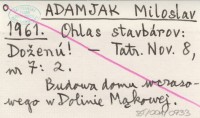 ADAMJAK Miloslav
1961. Ohlas stavbárov:
Doženú! – Tatr. Nov. 8,
nr 7: 2.
Budowa domu wczaso-
wego w Dolinie Mąkowej.